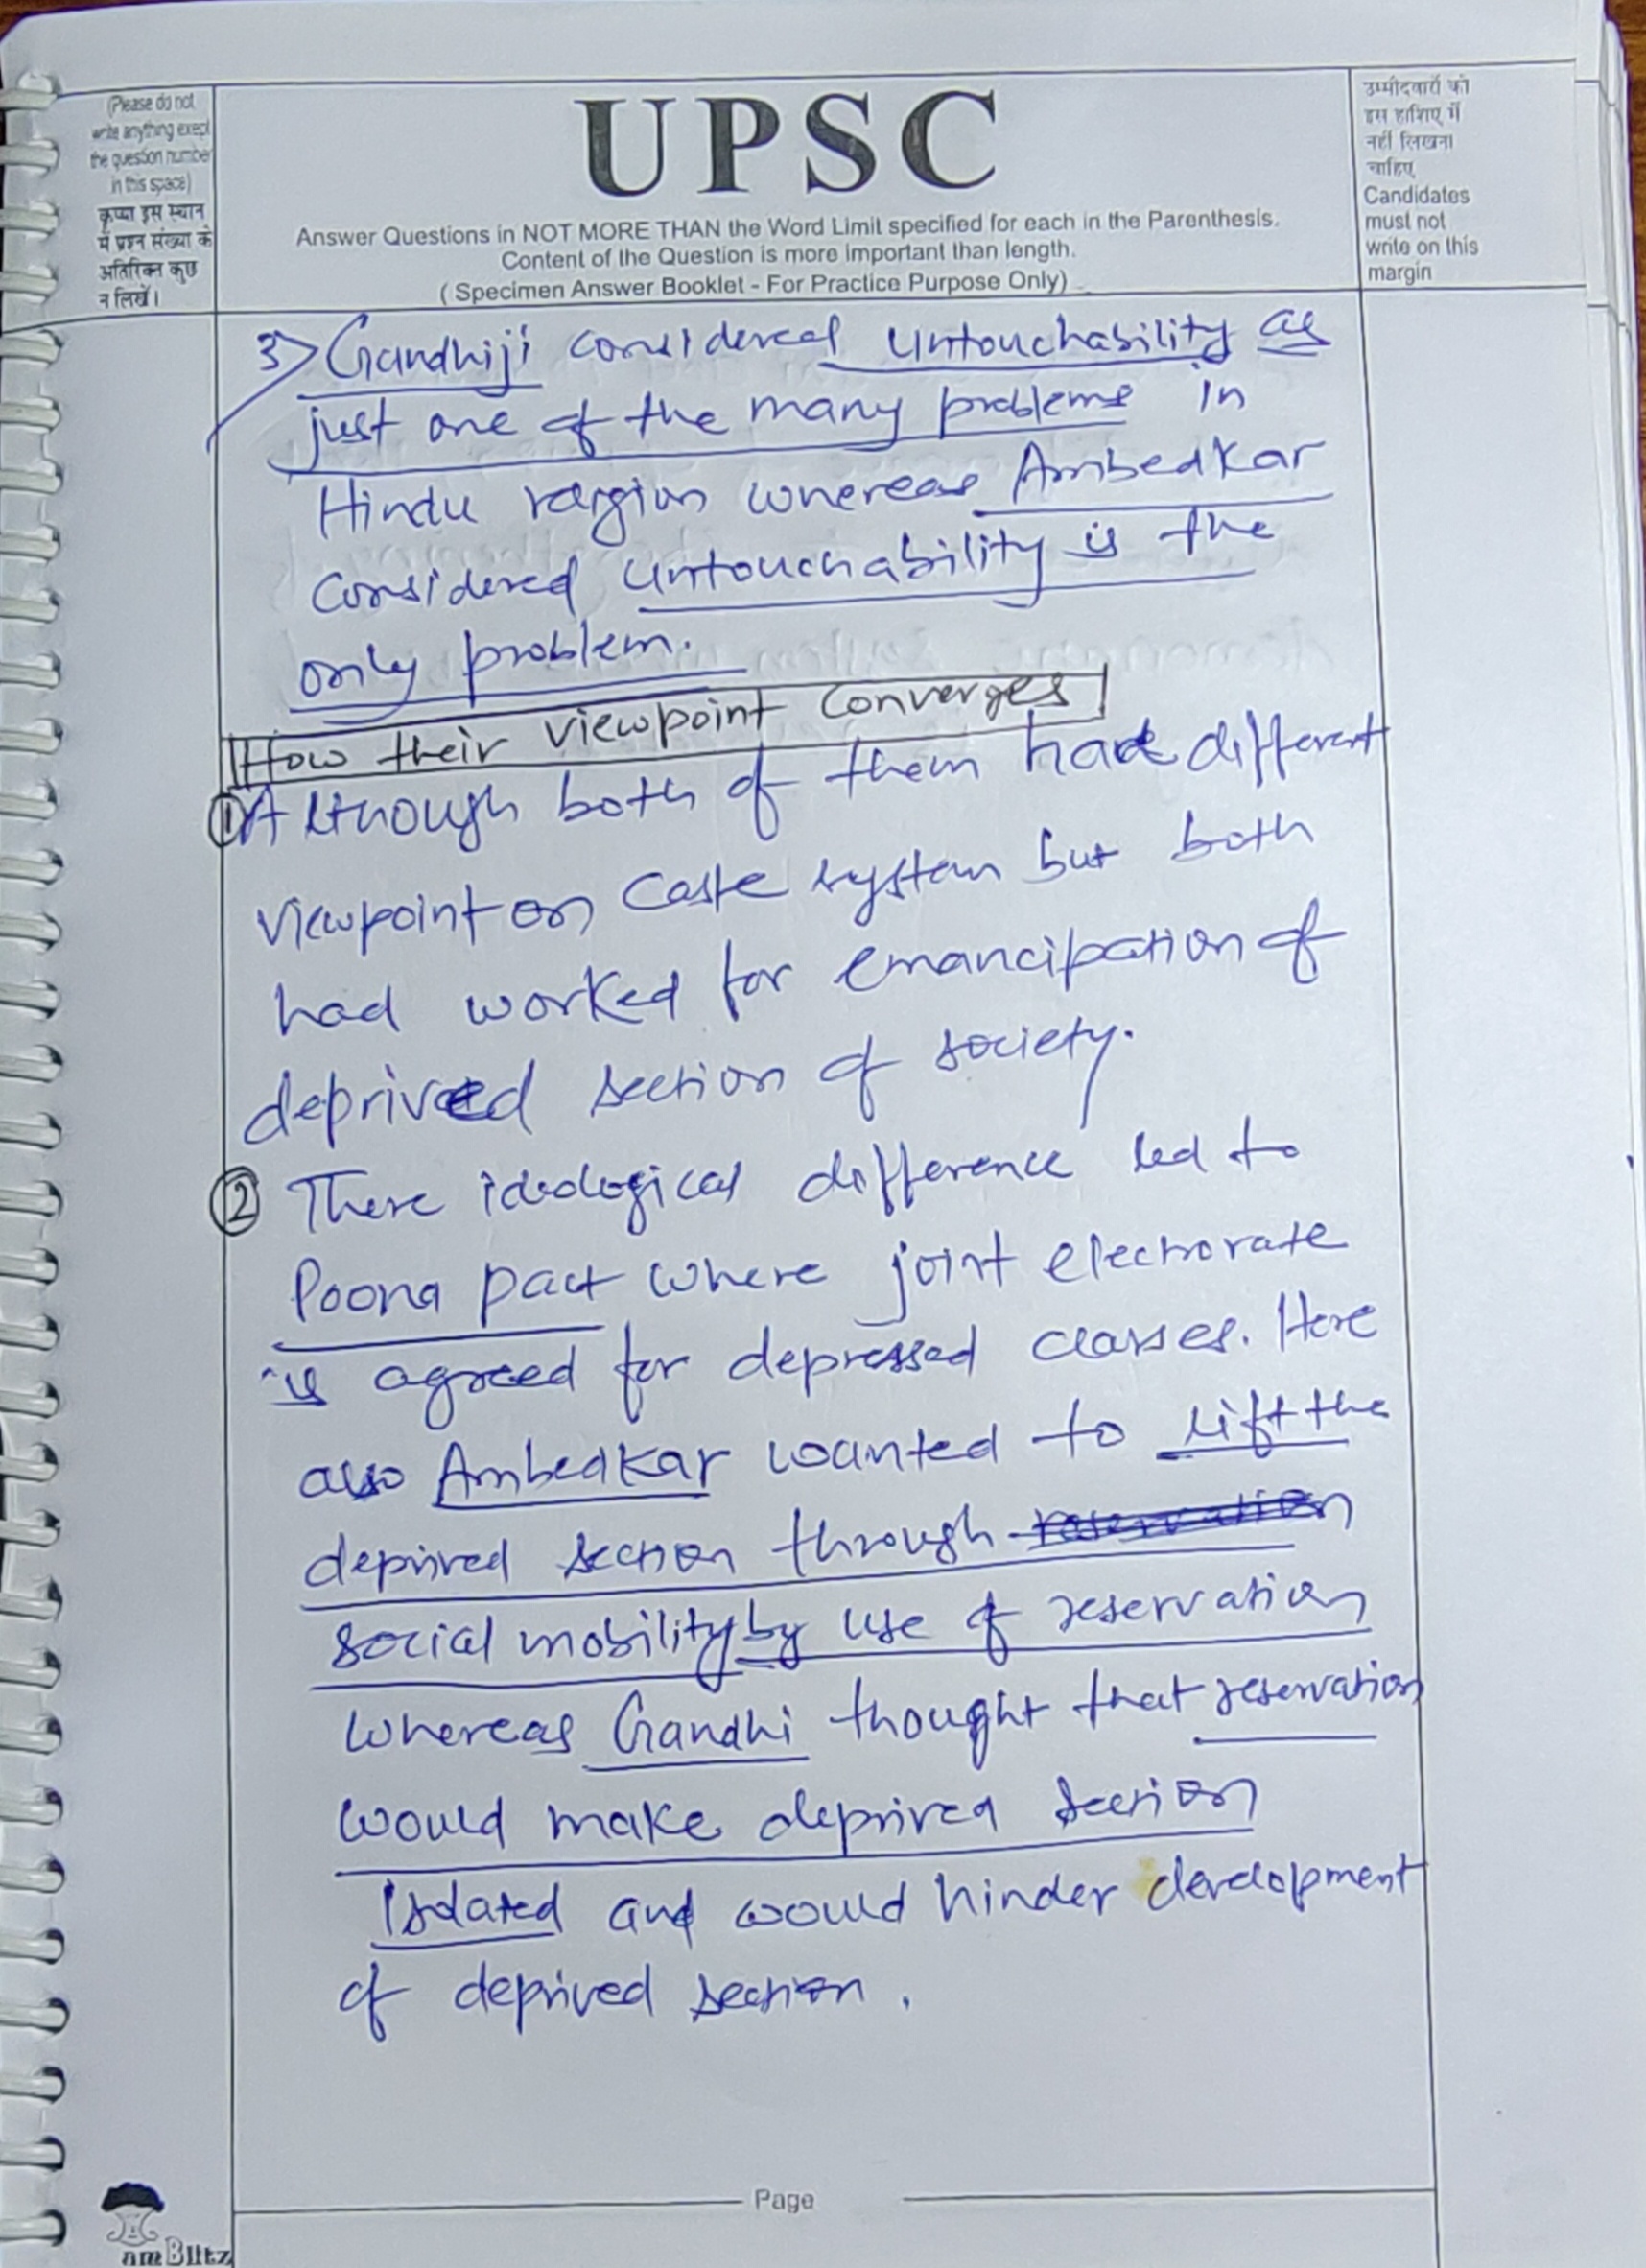 (Please do not
write anything exept
the question number
in this space)
कृप्या इस स्थान
में प्रश्न संख्या के
अतिरिक्त कुछ
न लिखें।
UPSC
Answer Questions in NOT MORE THAN the Word Limit specified for each in the Parenthesis.
Content of the Question is more important than length.
( Specimen Answer Booklet - For Practice Purpose Only)
उम्मीदवारों को
इस हाशिए में
नहीं लिखना
चाहिए
Candidates
must not
write on this
margin
3> Gandhiji considered untouchability as
just one of the many problems in
Hindu whereas Ambedkar
considered untouchability is the
only problem.
How their viewpoint converges
① Although both of them had different
viewpoint on caste system but both
had worked for emancipation of
deprived section of society.
② There ideological difference led to
Poona pact where joint electorate
is agreed for depressed classes. Here
also Ambedkar wanted to lift the
deprived section through reservation
social mobility by use of reservation
whereas Gandhi thought that reservation
would make deprived section
isolated and would hinder development
of deprived section.
Page
am Blitz